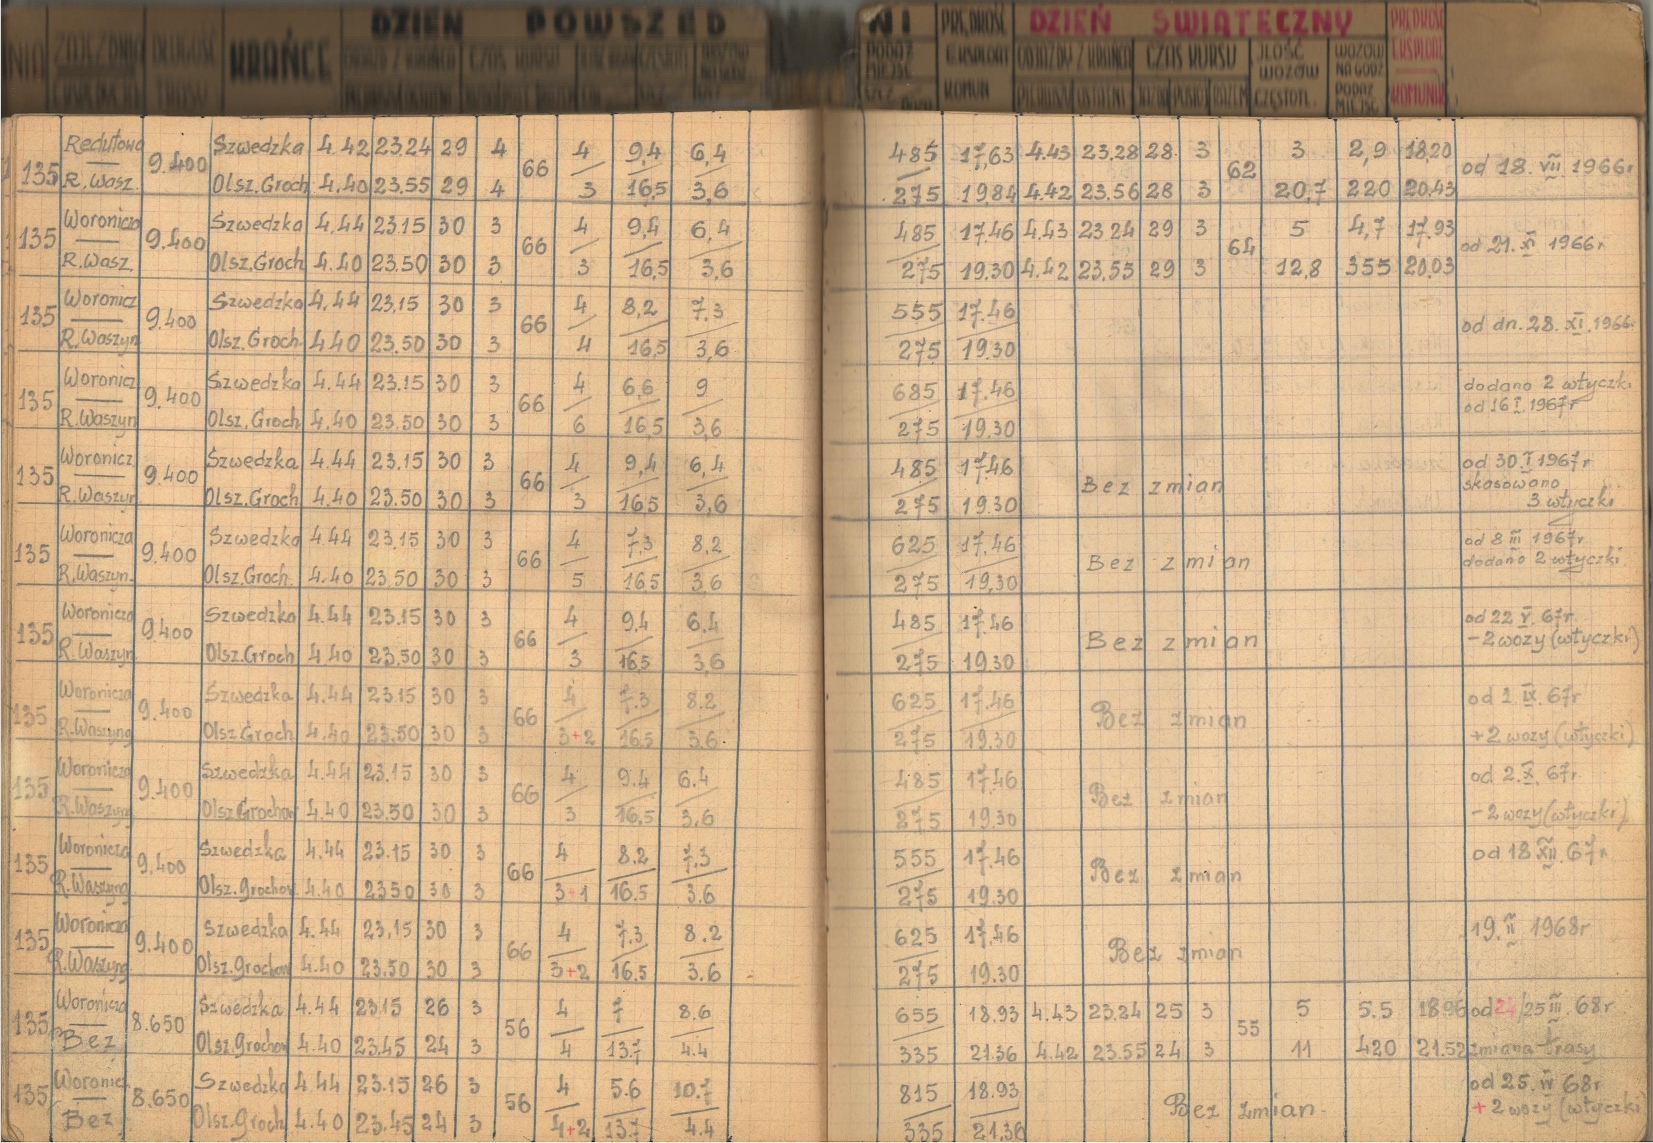 DZIEŃ POWSZED
NI PRĘDKOŚĆ DZIEŃ ŚWIĄTECZNY PRĘDKOŚĆ
ZAJEZDNIA DŁUGOŚĆ KRAŃCE ODJAZDY Z KRAŃCA CZAS KURSU
PODAŻ MIEJSC EKSPLOAT ODJAZDY Z KRAŃCA CZAS KURSU ILOŚĆ WOZÓW WOZÓW NA GODZ EKSPLOAT
KOMUN PIERWSZY OSTATNI CZĘSTOTL. PODAŻ MIEJSC KOMUNIK
Redutowa Szwedzka 4.42 23.24 29 4 4 9,4 6,4 485 17,63 4.43 23.28 28 3 3 2,9 18,20
135 9.400 66 62 od 18. VII 1966r
R.Wasz. Olsz.Groch 4.40 23.55 29 4 3 16,5 3,6 275 19.84 4.42 23.56 28 3 20,7 220 20.43
Woronicza Szwedzka 4.44 23.15 30 3 4 9,4 6,4 485 17.46 4.43 23 24 29 3 5 4,7 17.93
135 9.400 66 64 od 21. XI 1966r
R.Wasz. Olsz.Groch 4.40 23.50 30 3 3 16,5 3,6 275 19.30 4.42 23,55 29 3 12,8 355 20,03
Woronicz Szwedzka 4.44 23,15 30 3 4 8,2 7,3 555 17.46
135 9.400 66 od dn. 28. XI. 1966
R.Waszyn Olsz.Groch 4.40 23.50 30 3 4 16,5 3,6 275 19.30
Woronicz Szwedzka 4.44 23.15 30 3 4 6,6 9 685 17.46 dodano 2 wtyczki
135 9.400 66 od 16 I. 1967r
R.Waszyn Olsz.Groch 4.40 23.50 30 3 6 16,5 3,6 275 19.30
Woronicz Szwedzka 4.44 23.15 30 3 4 9,4 6,4 485 17.46 od 30 I 1967r
135 9.400 66 Bez zmian skasowano
R.Waszyn Olsz.Groch 4.40 23.50 30 3 3 16,5 3,6 275 19.30 3 wtyczki
Woronicza Szwedzka 4.44 23.15 30 3 4 7,3 8,2 625 17.46 od 8 III 1967r
135 9.400 66 Bez zmian dodano 2 wtyczki.
R.Waszyn. Olsz.Groch. 4.40 23.50 30 3 5 16,5 3,6 275 19,30
Woronicza Szwedzka 4.44 23.15 30 3 4 9,4 6,4 485 17.46 od 22 V. 67r
135 9.400 66 Bez zmian -2 wozy (wtyczki)
R.Waszyn Olsz.Groch 4.40 23.50 30 3 3 16,5 3,6 275 19.30
Woronicza Szwedzka 4.44 23.15 30 3 4 7.3 8.2 625 17.46 od 1 IX. 67r
135 9.400 66 Bez zmian
R.Waszyng Olsz.Groch 4.40 23.50 30 3 3+2 16.5 3.6 275 19.30 +2 wozy (wtyczki)
Woronicza Szwedzka 4.44 23.15 30 3 4 9.4 6.4 485 17.46 od 2. X. 67r
135 9.400 66 Bez zmian
R.Waszyng Olsz.Grochow 4.40 23.50 30 3 3 16.5 3.6 275 19.30 -2 wozy (wtyczki)
Woronicza Szwedzka 4.44 23.15 30 3 4 8.2 7.3 555 17.46 od 18 XII. 67r
135 9.400 66 Bez zmian
R.Waszyng Olsz.Grochow 4.40 2350 30 3 3+1 16.5 3.6 275 19.30
Woronicza Szwedzka 4.44 23.15 30 3 4 7.3 8.2 625 17.46 19. II 1968r
135 9.400 66 Bez zmian
R.Waszyng Olsz.Grochow 4.40 23.50 30 3 3+2 16.5 3.6 275 19.30
Woronicza Szwedzka 4.44 23.15 26 3 4 7 8.6 655 18.93 4.43 23.24 25 3 5 5.5 18.96 od 24/25 III 68r
135 8.650 56 55
Bez Olsz.Grochow 4.40 23.45 24 3 4 13.7 4.4 335 21.36 4.42 23.55 24 3 11 420 21.52 zmiana trasy
Woronic Szwedzka 4.44 23.15 26 3 4 5.6 10.7 815 18.93 od 25. IV 68r
135 8.650 56 Bez zmian. +2 wozy (wtyczki
Bez Olsz.Groch 4.40 23.45 24 3 4+2 13.7 4.4 335 21.36